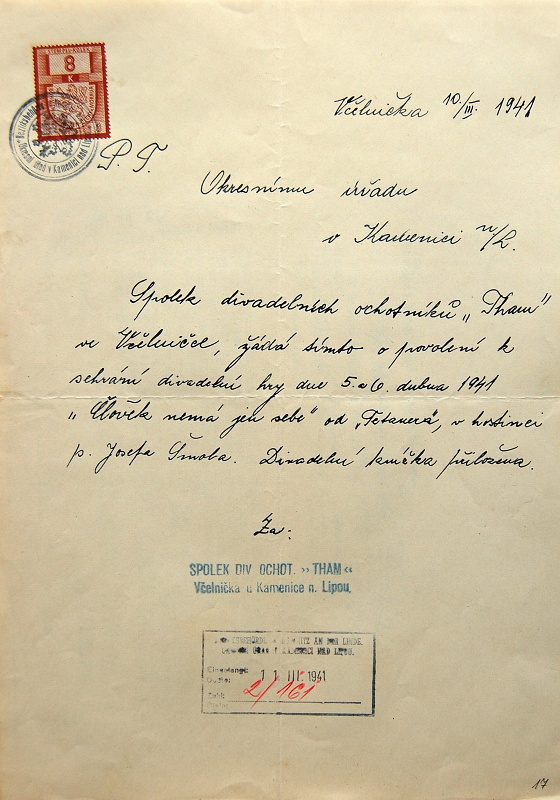 8
K
Včelnička 10/III. 1941
P. T.
Okresnímu úřadu
v Kamenici n/L.
Spolek divadelních ochotníků „Tham"
ve Včelničce, žádá tímto o povolení k
sehrání divadelní hry dne 5. a 6. dubna 1941
„Člověk nemá jen sebe" od „Tetauera", v hostinci
p. Josefa Šmoba. Divadelní knížka přiložena.
Za:
SPOLEK DIV. OCHOT. „THAM"
Včelnička u Kamenice n. Lipou,
AM DER LINDE.
KAMENICI NAD LIPOU.
Eingelangt:
Došlo:
11 III. 1941
Zahl:
2/161
17